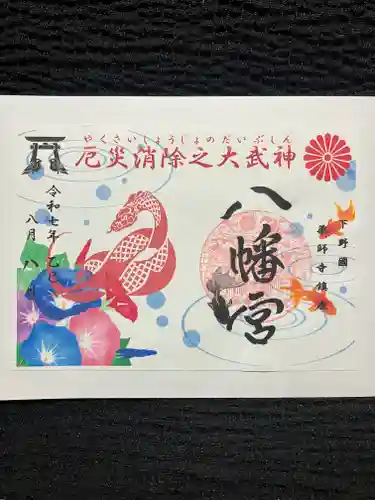 やくさいしょうじょのだいぶしん
厄災消除之大武神
下野國
薬師寺鎮座
八幡宮
令和七年乙巳
八月八日